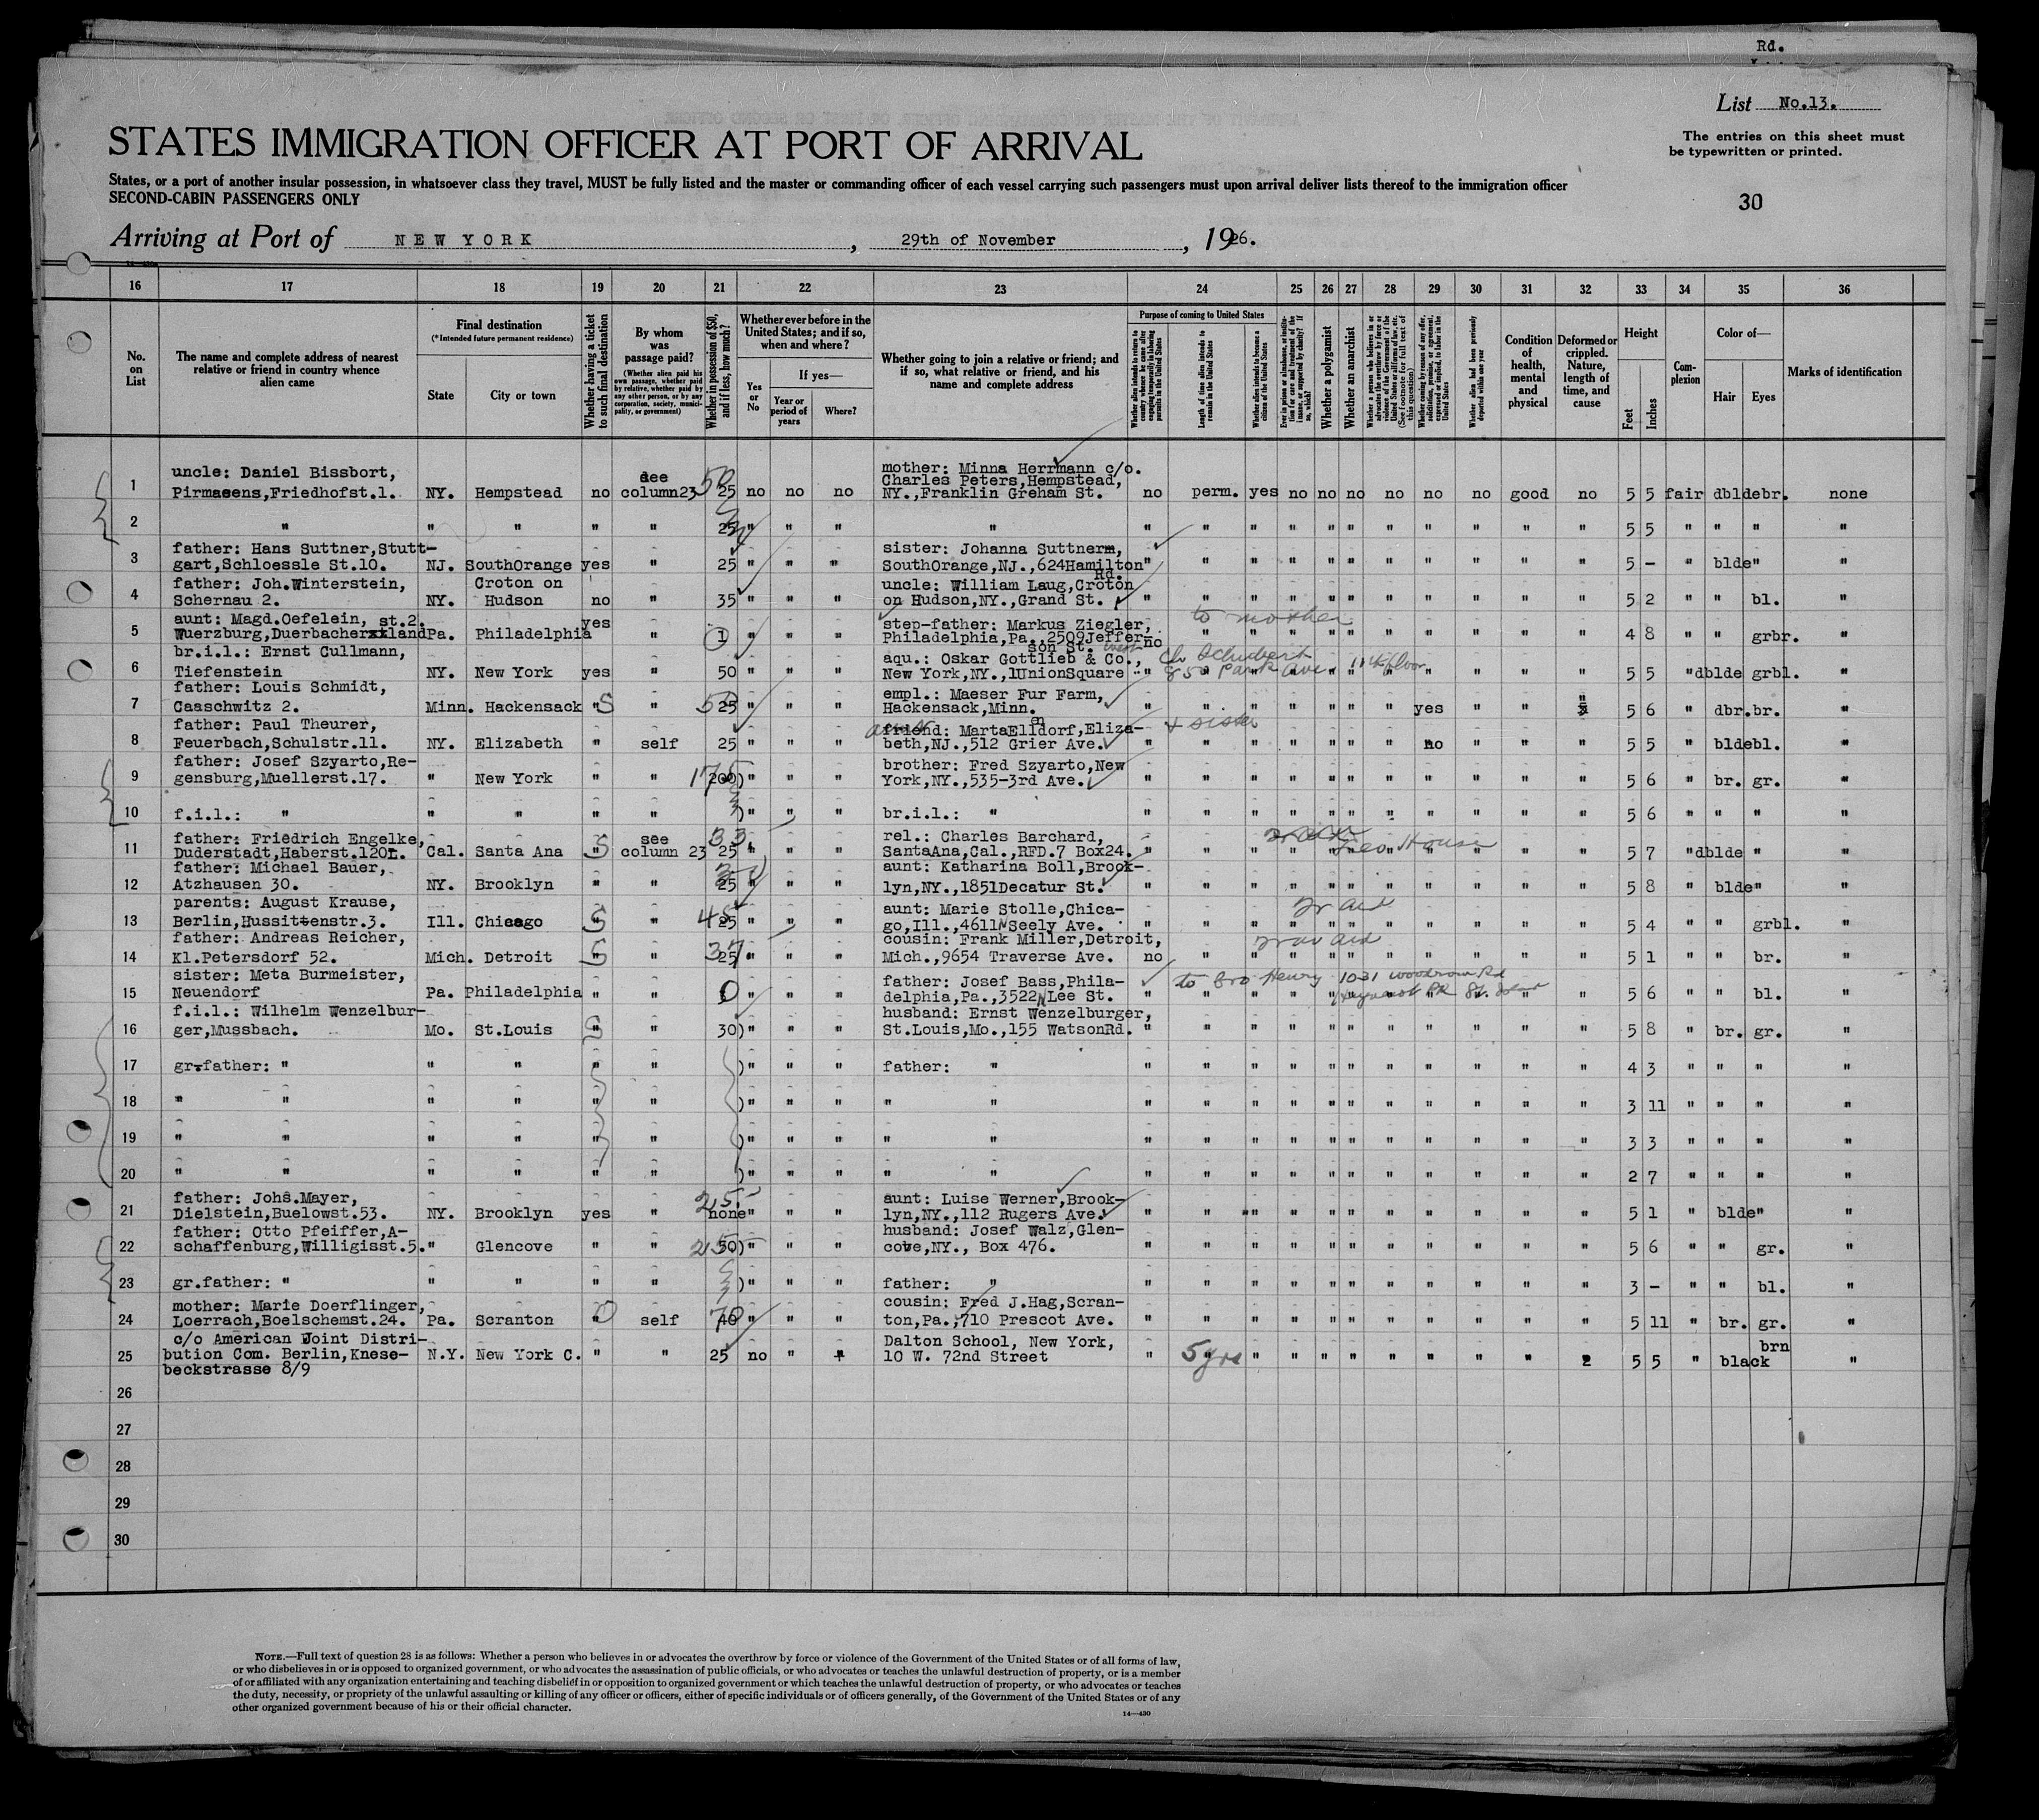 Rd.
List No.13.
STATES IMMIGRATION OFFICER AT PORT OF ARRIVAL
The entries on this sheet must
be typewritten or printed.
States, or a port of another insular possession, in whatsoever class they travel, MUST be fully listed and the master or commanding officer of each vessel carrying such passengers must upon arrival deliver lists thereof to the immigration officer
SECOND-CABIN PASSENGERS ONLY
30
Arriving at Port of NEW YORK, 29th of November, 1926.
16 17 18 19 20 21 22 23 24 25 26 27 28 29 30 31 32 33 34 35 36
No. on List
The name and complete address of nearest relative or friend in country whence alien came
Final destination
(*Intended future permanent residence)
State
City or town
Whether having a ticket to such final destination
By whom was passage paid?
(Whether alien paid his own passage, whether paid by relative, whether paid by any other person, or by any corporation, society, municipality, or government)
Whether in possession of $50, and if less, how much?
Whether ever before in the United States; and if so, when and where?
Yes or No
If yes—
Year or period of years
Where?
Whether going to join a relative or friend; and if so, what relative or friend, and his name and complete address
Purpose of coming to United States
Whether alien intends to return to country whence he came after engaging temporarily in laboring pursuits in the United States
Length of time alien intends to remain in the United States
Whether alien intends to become a citizen of the United States
Ever in prison or almshouse, or institution for care and treatment of the insane, or supported by charity? If so, which?
Whether a polygamist
Whether an anarchist
Whether coming by reason of any offer, solicitation, promise, or agreement, expressed or implied, to labor in the United States
Whether alien had been previously deported within one year
Condition of health, mental and physical
Deformed or crippled. Nature, length of time, and cause
Height
Feet
Inches
Complexion
Color of—
Hair
Eyes
Marks of identification
uncle: Daniel Bissbort, see mother: Minna Herrmann c/o.
Charles Peters, Hempstead,
1 Pirmasens, Friedhofst.1. NY. Hempstead no column23 50 25 no no no NY., Franklin Greham St. no perm. yes no no no no no no good no 5 5 fair dblde br. none
2 " " " " " 25 " " " " " " " " " " " " " " " 5 5 " " " "
father: Hans Suttner, Stutt- sister: Johanna Suttner,
3 gart, Schloessle St.10. NJ. SouthOrange yes " 25 " " " SouthOrange, NJ., 624Hamilton " " " " " " " " " " " 5 - " blde " "
Rd.
father: Joh.Winterstein, Croton on uncle: William Laug, Croton
4 Schernau 2. NY. Hudson no " 35 " " " on Hudson, NY., Grand St. " " " " " " " " " " " 5 2 " " bl. "
aunt: Magd.Oefelein, st.2. yes step-father: Markus Ziegler, to mother
5 Wuerzburg, Duerbacherland Pa. Philadelphia " 1 " " " Philadelphia, Pa., 2509Jeffer- no " " " " " " " " " " 4 8 " " grbr. "
son St.
br.i.l.: Ernst Cullmann, aqu.: Oskar Gottlieb & Co., Schubert
6 Tiefenstein NY. New York yes " 50 " " " New York, NY., 1UnionSquare " 850 Park Ave 11th floor " " " " " 5 5 " dblde grbl. "
father: Louis Schmidt, empl.: Maeser Fur Farm,
7 Caaschwitz 2. Minn. Hackensack " S " 50 25 " " " Hackensack, Minn. " " " " " " " yes " " " 5 6 " dbr. br. "
father: Paul Theurer, aunt friend: Marta Ellendorf, Eliza- + sister
8 Feuerbach, Schulstr.11. NY. Elizabeth " self 25 " " " beth, NJ., 512 Grier Ave. " " " " " " " no " " " 5 5 " blde bl. "
father: Josef Szyarto, Re- brother: Fred Szyarto, New
9 gensburg, Muellerst.17. " New York " " 175 200) " " " York, NY., 535-3rd Ave. " " " " " " " " " " " 5 6 " br. gr. "
10 f.i.l.: " " " " " ) " " " br.i.l.: " " " " " " " " " " " " 5 6 " " " "
father: Friedrich Engelke, see 33 rel.: Charles Barchard,
11 Duderstadt, Haberst.120r. Cal. Santa Ana " S column 23 25 " " " SantaAna, Cal., RFD.7 Box24. " " " " " " Leo House " " " " 5 7 " dblde " "
father: Michael Bauer, aunt: Katharina Boll, Brook-
12 Atzhausen 30. NY. Brooklyn " " 25 " " " lyn, NY., 1851Decatur St. " " " " " " " " " " " 5 8 " blde " "
parents: August Krause, aunt: Marie Stolle, Chica- Tr aid
13 Berlin, Hussittenstr.3. Ill. Chicago " S " 45 25 " " " go, Ill., 4611 N Seely Ave. " " " " " " " " " " " 5 4 " " grbl. "
father: Andreas Reicher, cousin: Frank Miller, Detroit, Trav aid
14 Kl.Petersdorf 52. Mich. Detroit " S " 37 25 " " " Mich., 9654 Traverse Ave. no " " " " " " " " " " 5 1 " " br. "
sister: Meta Burmeister, father: Josef Bass, Phila- to Bro Henry 1031 Woodrow Rd
15 Neuendorf Pa. Philadelphia " " 0 " " " delphia, Pa., 3522 N Lee St. " " " " " " " " " " " 5 6 " " bl. "
f.i.l.: Wilhelm Wenzelbur- husband: Ernst Wenzelburger,
16 ger, Mussbach. Mo. St.Louis " S " 30) " " " St.Louis, Mo., 155 WatsonRd. " " " " " " " " " " " 5 8 " br. gr. "
17 gr.father: " " " " " ) " " " father: " " " " " " " " " " " " 4 3 " " " "
18 " " " " " " ) " " " " " " " " " " " " " " " " " 3 11 " " " "
19 " " " " " " ) " " " " " " " " " " " " " " " " " 3 3 " " " "
20 " " " " " " ) " " " " " " " " " " " " " " " " " 2 7 " " " "
father: Johs.Mayer, 25 aunt: Luise Werner, Brook-
21 Dielstein, Buelowst.53. NY. Brooklyn yes " none " " " lyn, NY., 112 Rugers Ave. " " " " " " " " " " " 5 1 " blde " "
father: Otto Pfeiffer, A- husband: Josef Walz, Glen-
22 schaffenburg, Willigisst.5. " Glencove " " 25 50) " " " cove, NY., Box 476. " " " " " " " " " " " 5 6 " " gr. "
23 gr.father: " " " " " ) " " " father: " " " " " " " " " " " " 3 - " " bl. "
mother: Marie Doerflinger, cousin: Fred J.Hag, Scran-
24 Loerrach, Boelschemst.24. Pa. Scranton " self 70 " " " ton, Pa., 710 Prescot Ave. " " " " " " " " " " " 5 11 " br. gr. "
c/o American Joint Distri- Dalton School, New York, brn
25 bution Com. Berlin, Knese- N.Y. New York C. " " 25 no " 10 W. 72nd Street " 5 yrs " " " " " " " " 5 5 " black "
beckstrasse 8/9
26
27
28
29
30
NOTE.—Full text of question 28 is as follows: Whether a person who believes in or advocates the overthrow by force or violence of the Government of the United States or of all forms of law,
or who disbelieves in or is opposed to organized government, or who advocates the assassination of public officials, or who advocates or teaches the unlawful destruction of property, or is a member
of or affiliated with any organization entertaining and teaching disbelief in or opposition to organized government or which teaches the unlawful destruction of property, or who advocates or teaches
the duty, necessity, or propriety of the unlawful assaulting or killing of any officer or officers, either of specific individuals or of officers generally, of the Government of the United States or of any
other organized government because of his or their official character.
14—430